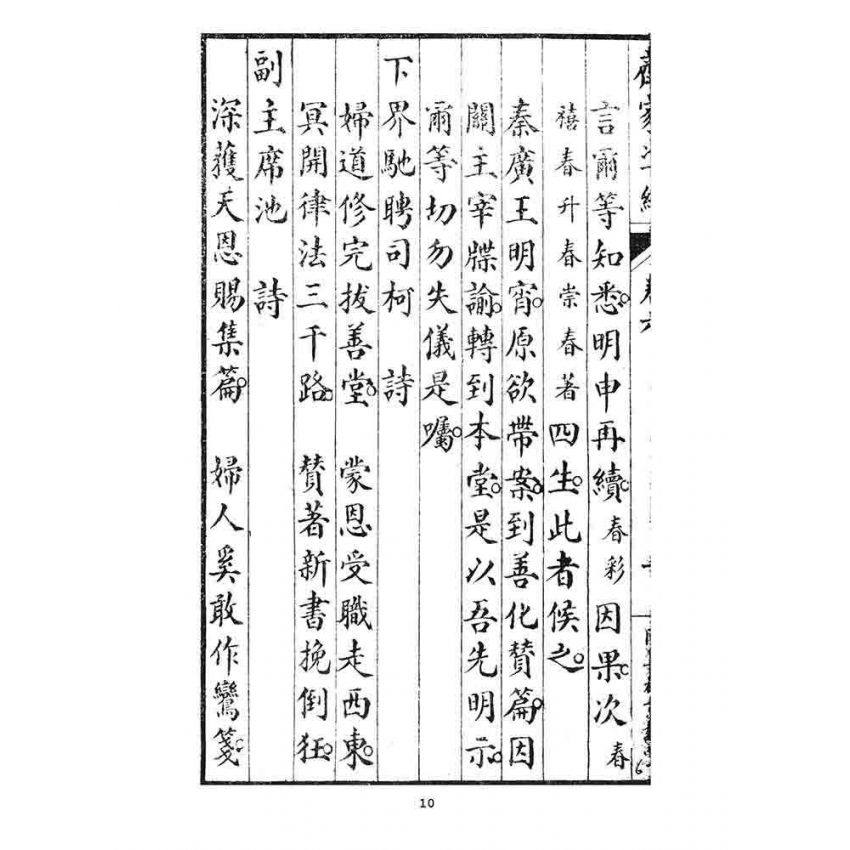 言爾等知悉。明申再續。春彩因果。次春
禧春升春崇春著四生。此者候之。
秦廣王明宵。原欲帶案。到善化贊篇。因
關主宰牒諭。轉到本堂。是以吾先明示。
爾等切勿失儀是囑。
下界馳聘司柯　詩
婦道修完拔善堂。　蒙恩受職走西東。
冥開律法三千路。　贊著新書挽倒狂。
副主席池　詩
深獲天恩賜集篇。　婦人奚敢作鸞箋。
10